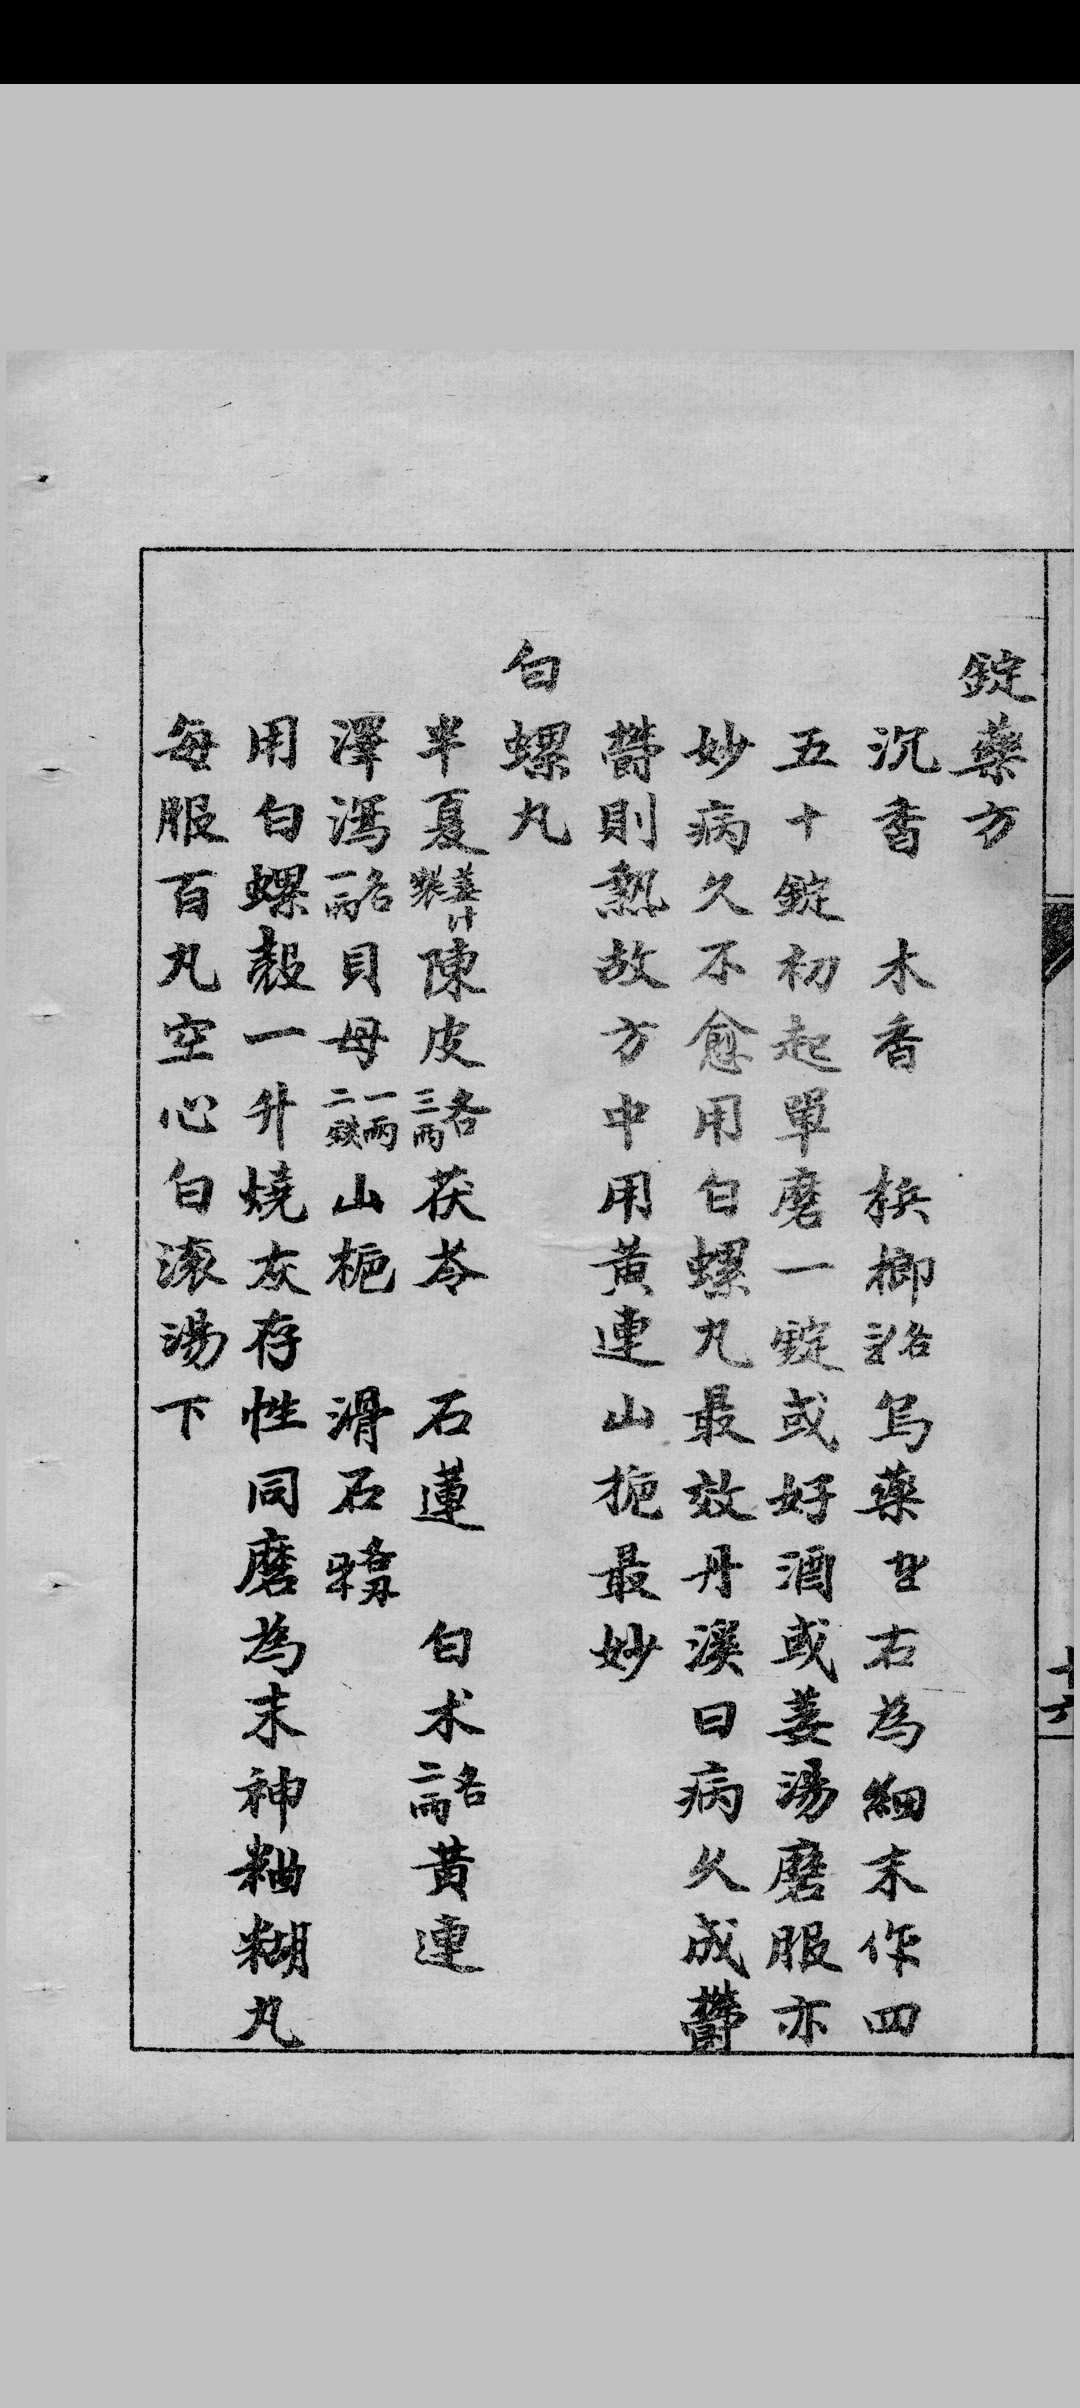 錠藥方
沉香 木香 梹榔各 烏藥 右為細末作四
五十錠初起單磨一錠或好酒或姜湯磨服亦
妙病久不愈用白螺丸最效丹溪曰病久成欝
欝則熱故方中用黃連山梔最妙
白螺丸
半夏姜汁製陳皮各三兩茯苓 石蓮 白术各二兩黃連
澤瀉各一兩貝母一兩二錢山梔 滑石各
用白螺殼一升燒灰存性同磨為末神粬糊丸
每服百丸空心白滚湯下
十六